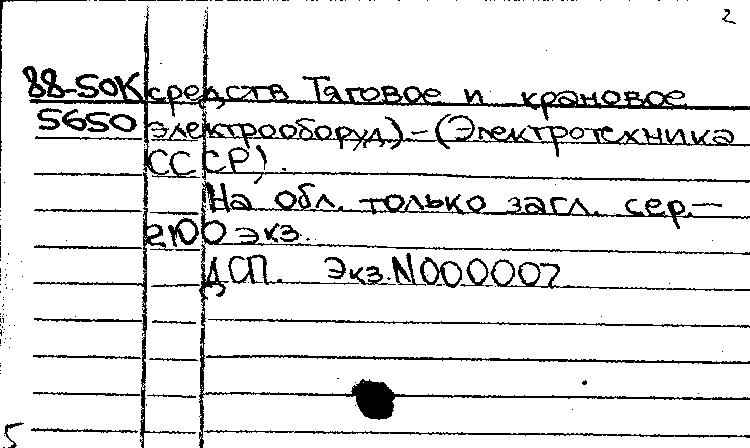 2
88-50К средств Тяговое и крановое
5650 электрооборуд) - (Электротехника
СССР).
На обл. только загл. сер. —
2100 экз.
ДСП. Экз. N000007
5